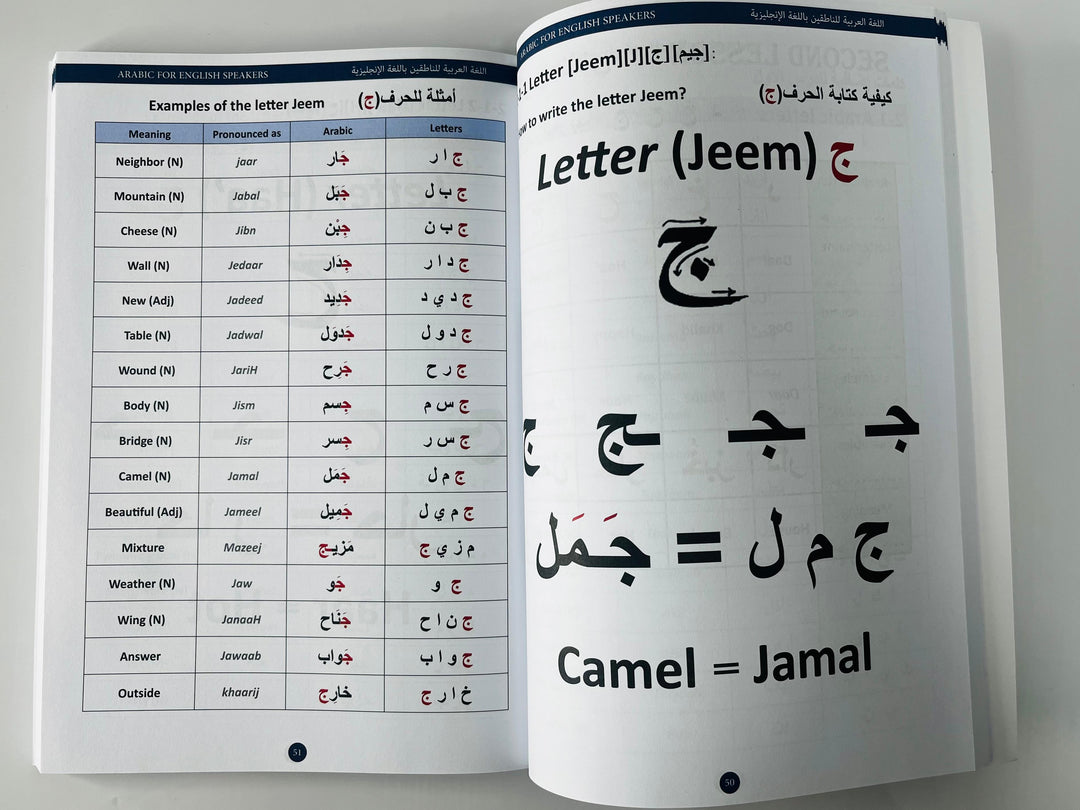 ARABIC FOR ENGLISH SPEAKERS اللغة العربية للناطقين باللغة الإنجليزية
-1 Letter [Jeem][J][ج][جيم]:
to write the letter Jeem? كيفية كتابة الحرف(ج)
Letter (Jeem) ج
ج
جـ ـجـ ـج ج
ج م ل = جَمَل
Camel = Jamal
50
ARABIC FOR ENGLISH SPEAKERS اللغة العربية للناطقين باللغة الإنجليزية
Examples of the letter Jeem أمثلة للحرف(ج)
Meaning Pronounced as Arabic Letters
Neighbor (N) jaar جَار ج ا ر
Mountain (N) Jabal جَبَل ج ب ل
Cheese (N) Jibn جِبْن ج ب ن
Wall (N) Jedaar جِدَار ج د ا ر
New (Adj) Jadeed جَدِيد ج د ي د
Table (N) Jadwal جَدوَل ج د و ل
Wound (N) JariH جَرِح ج ر ح
Body (N) Jism جِسم ج س م
Bridge (N) Jisr جِسر ج س ر
Camel (N) Jamal جَمَل ج م ل
Beautiful (Adj) Jameel جَمِيل ج م ي ل
Mixture Mazeej مَزيـج م ز ي ج
Weather (N) Jaw جَو ج و
Wing (N) JanaaH جَنَاح ج ن ا ح
Answer Jawaab جَواب ج و ا ب
Outside khaarij خارِج خ ا ر ج
51